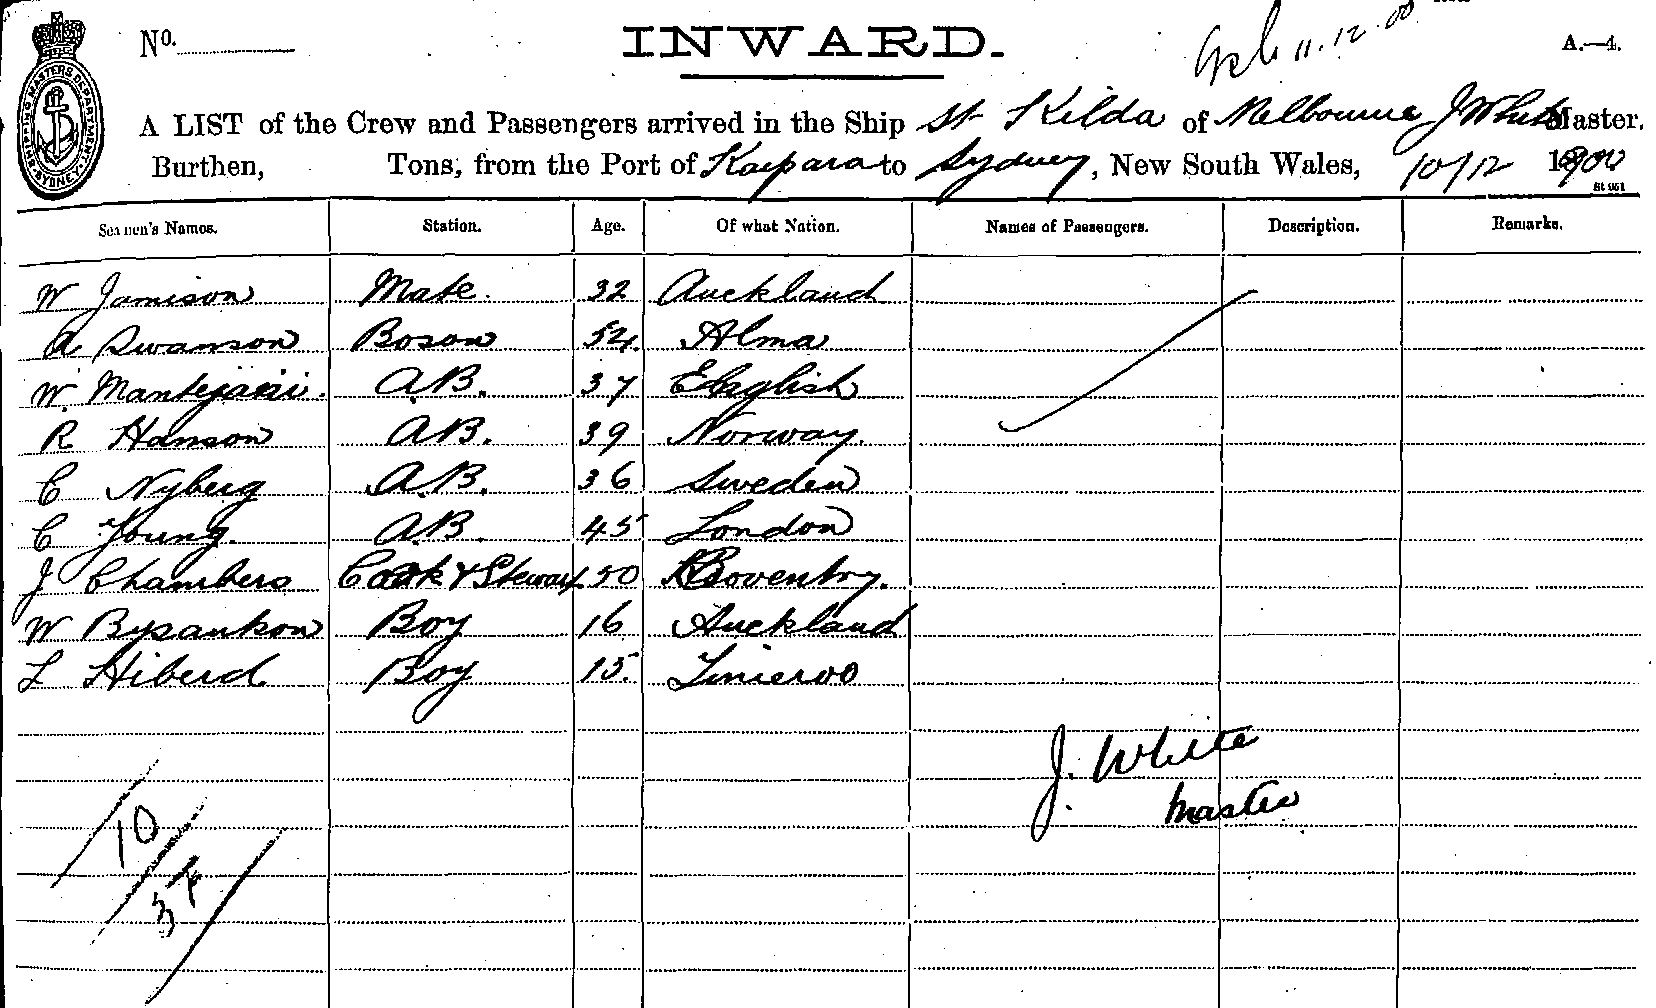 No.
INWARD.
11.12.00
A.—4.
SHIPPING MASTERS DEPARTMENT SYDNEY
A LIST of the Crew and Passengers arrived in the Ship St Kilda of Melbourne J White Master.
Burthen, Tons, from the Port of Kaipara to Sydney, New South Wales, 10/12 1900
St 951
Seamen's Names. Station. Age. Of what Nation. Names of Passengers. Description. Remarks.
W Jamison Mate. 32 Auckland
A Swanson Boson 54 Alma
W. A.B. 37 English
R Hanson A.B. 39 Norway.
C Nyberg A.B. 36 Sweden
C Young. A.B. 45 London
J Chambers Cook & Steward 50 Coventry.
W Boy 16 Auckland
L Hiberd Boy 15.
J. White
Master
10
34